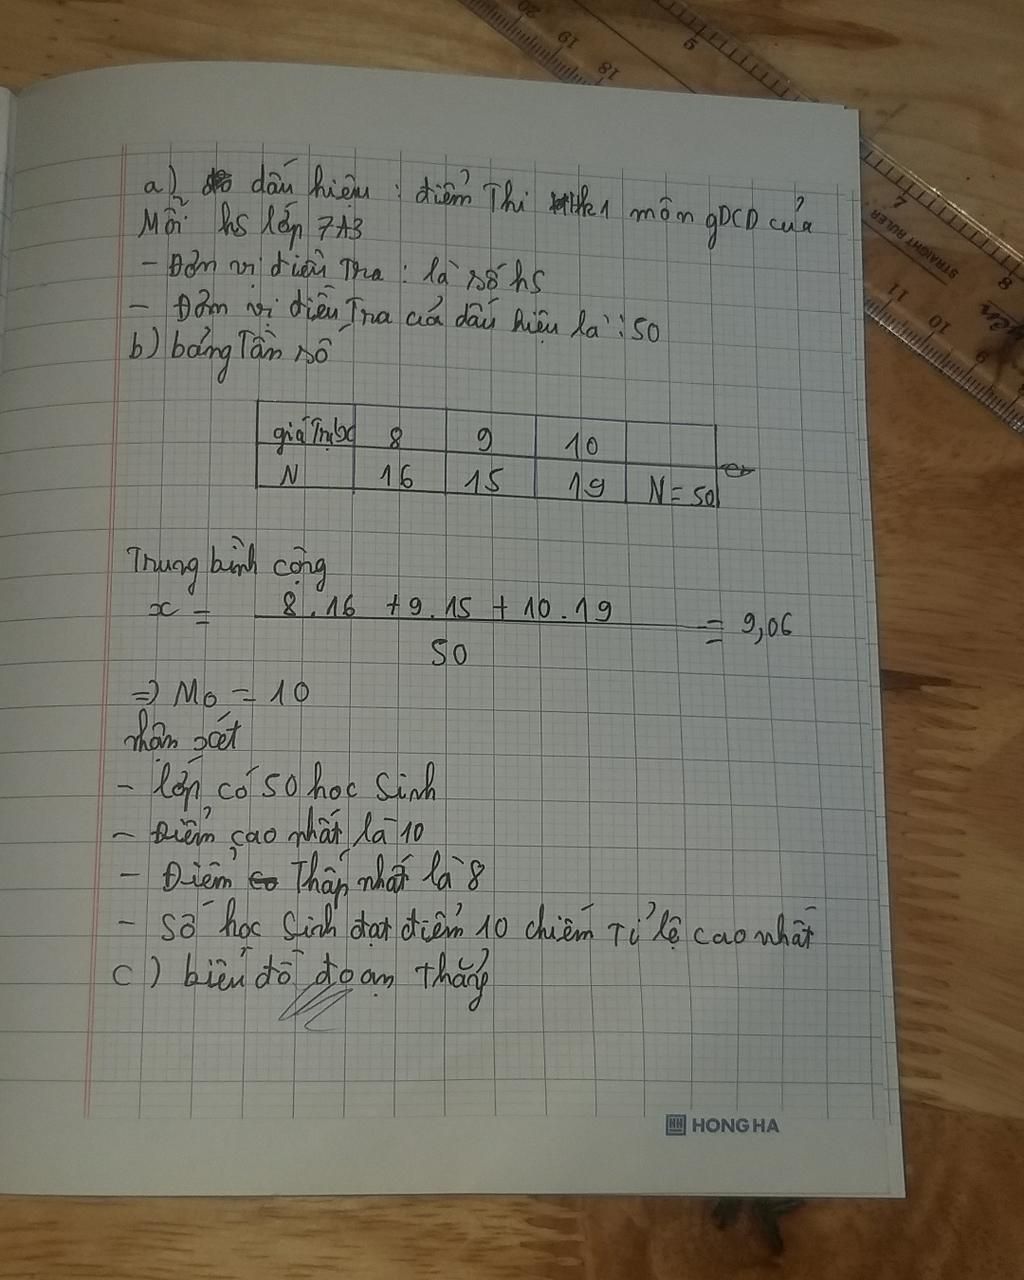 a) dấu hiệu : điểm Thi HK1 môn gDCD của
Mỗi hs lớp 7A3
- Đơn vị điều Tra : là số hs
- Đơn vị điều Tra của dấu hiệu là : 50
b) bảng Tần số
giá Trị x 8 9 10
N 16 15 19 N = 50
Trung bình cộng
x = 8.16 + 9.15 + 10.19 = 9,06
50
=> Mo = 10
nhận xét
- lớp có 50 học sinh
- Điểm cao nhất là 10
- Điểm Thấp nhất là 8
- Số học sinh đạt điểm 10 chiếm Tỉ lệ cao nhất
c) biểu đồ đoạn thẳng
HH HONG HA
20 19 18 5
7 8
STRAIGHT RULER
11 10 9